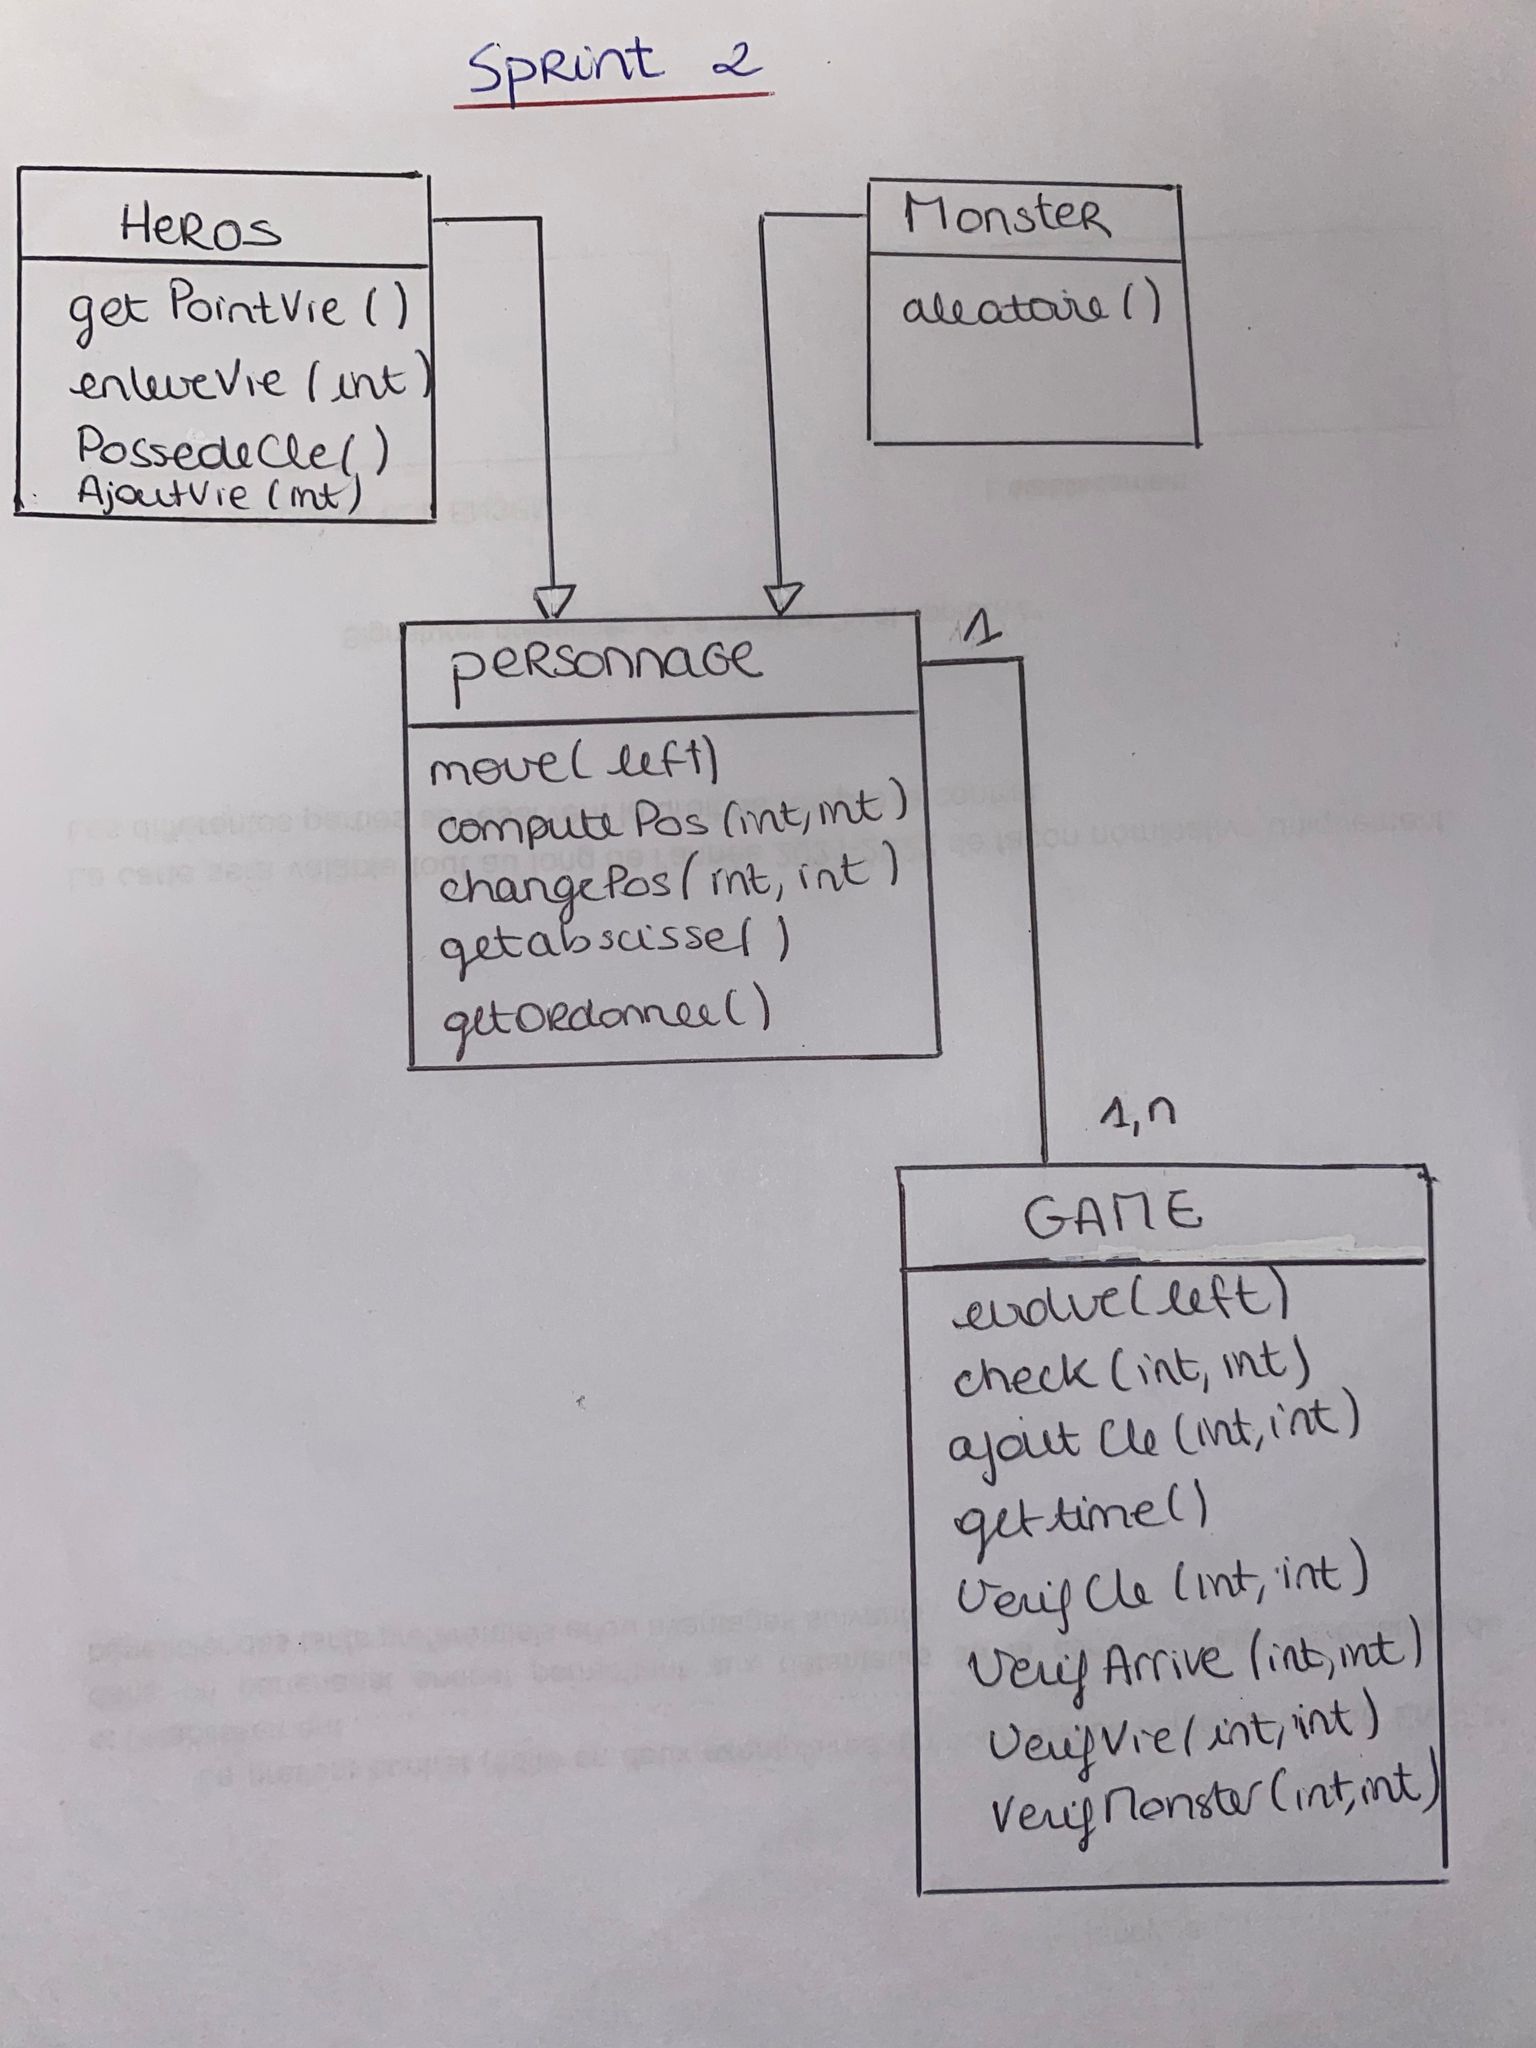 Sprint 2
Heros
get PointVie ()
enleveVie (int)
PossedeCle()
AjoutVie (int)
Monster
aleatoire()
personnage
move(left)
compute Pos (int, int)
changePos (int, int)
getabscisse()
getOrdonnee()
1
1,n
GAME
evolve(left)
check (int, int)
ajout Cle (int, int)
get time()
Verif Cle (int, int)
Verif Arrive (int, int)
VerifVie (int, int)
VerifMonster (int, int)